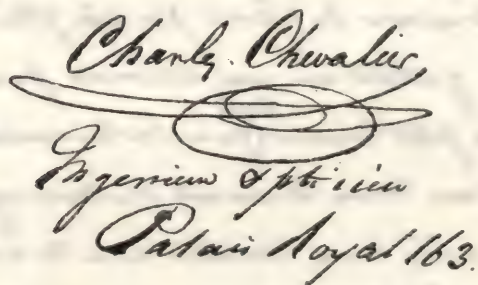 Charles Chevalier
Ingénieur Opticien
Palais Royal 163.